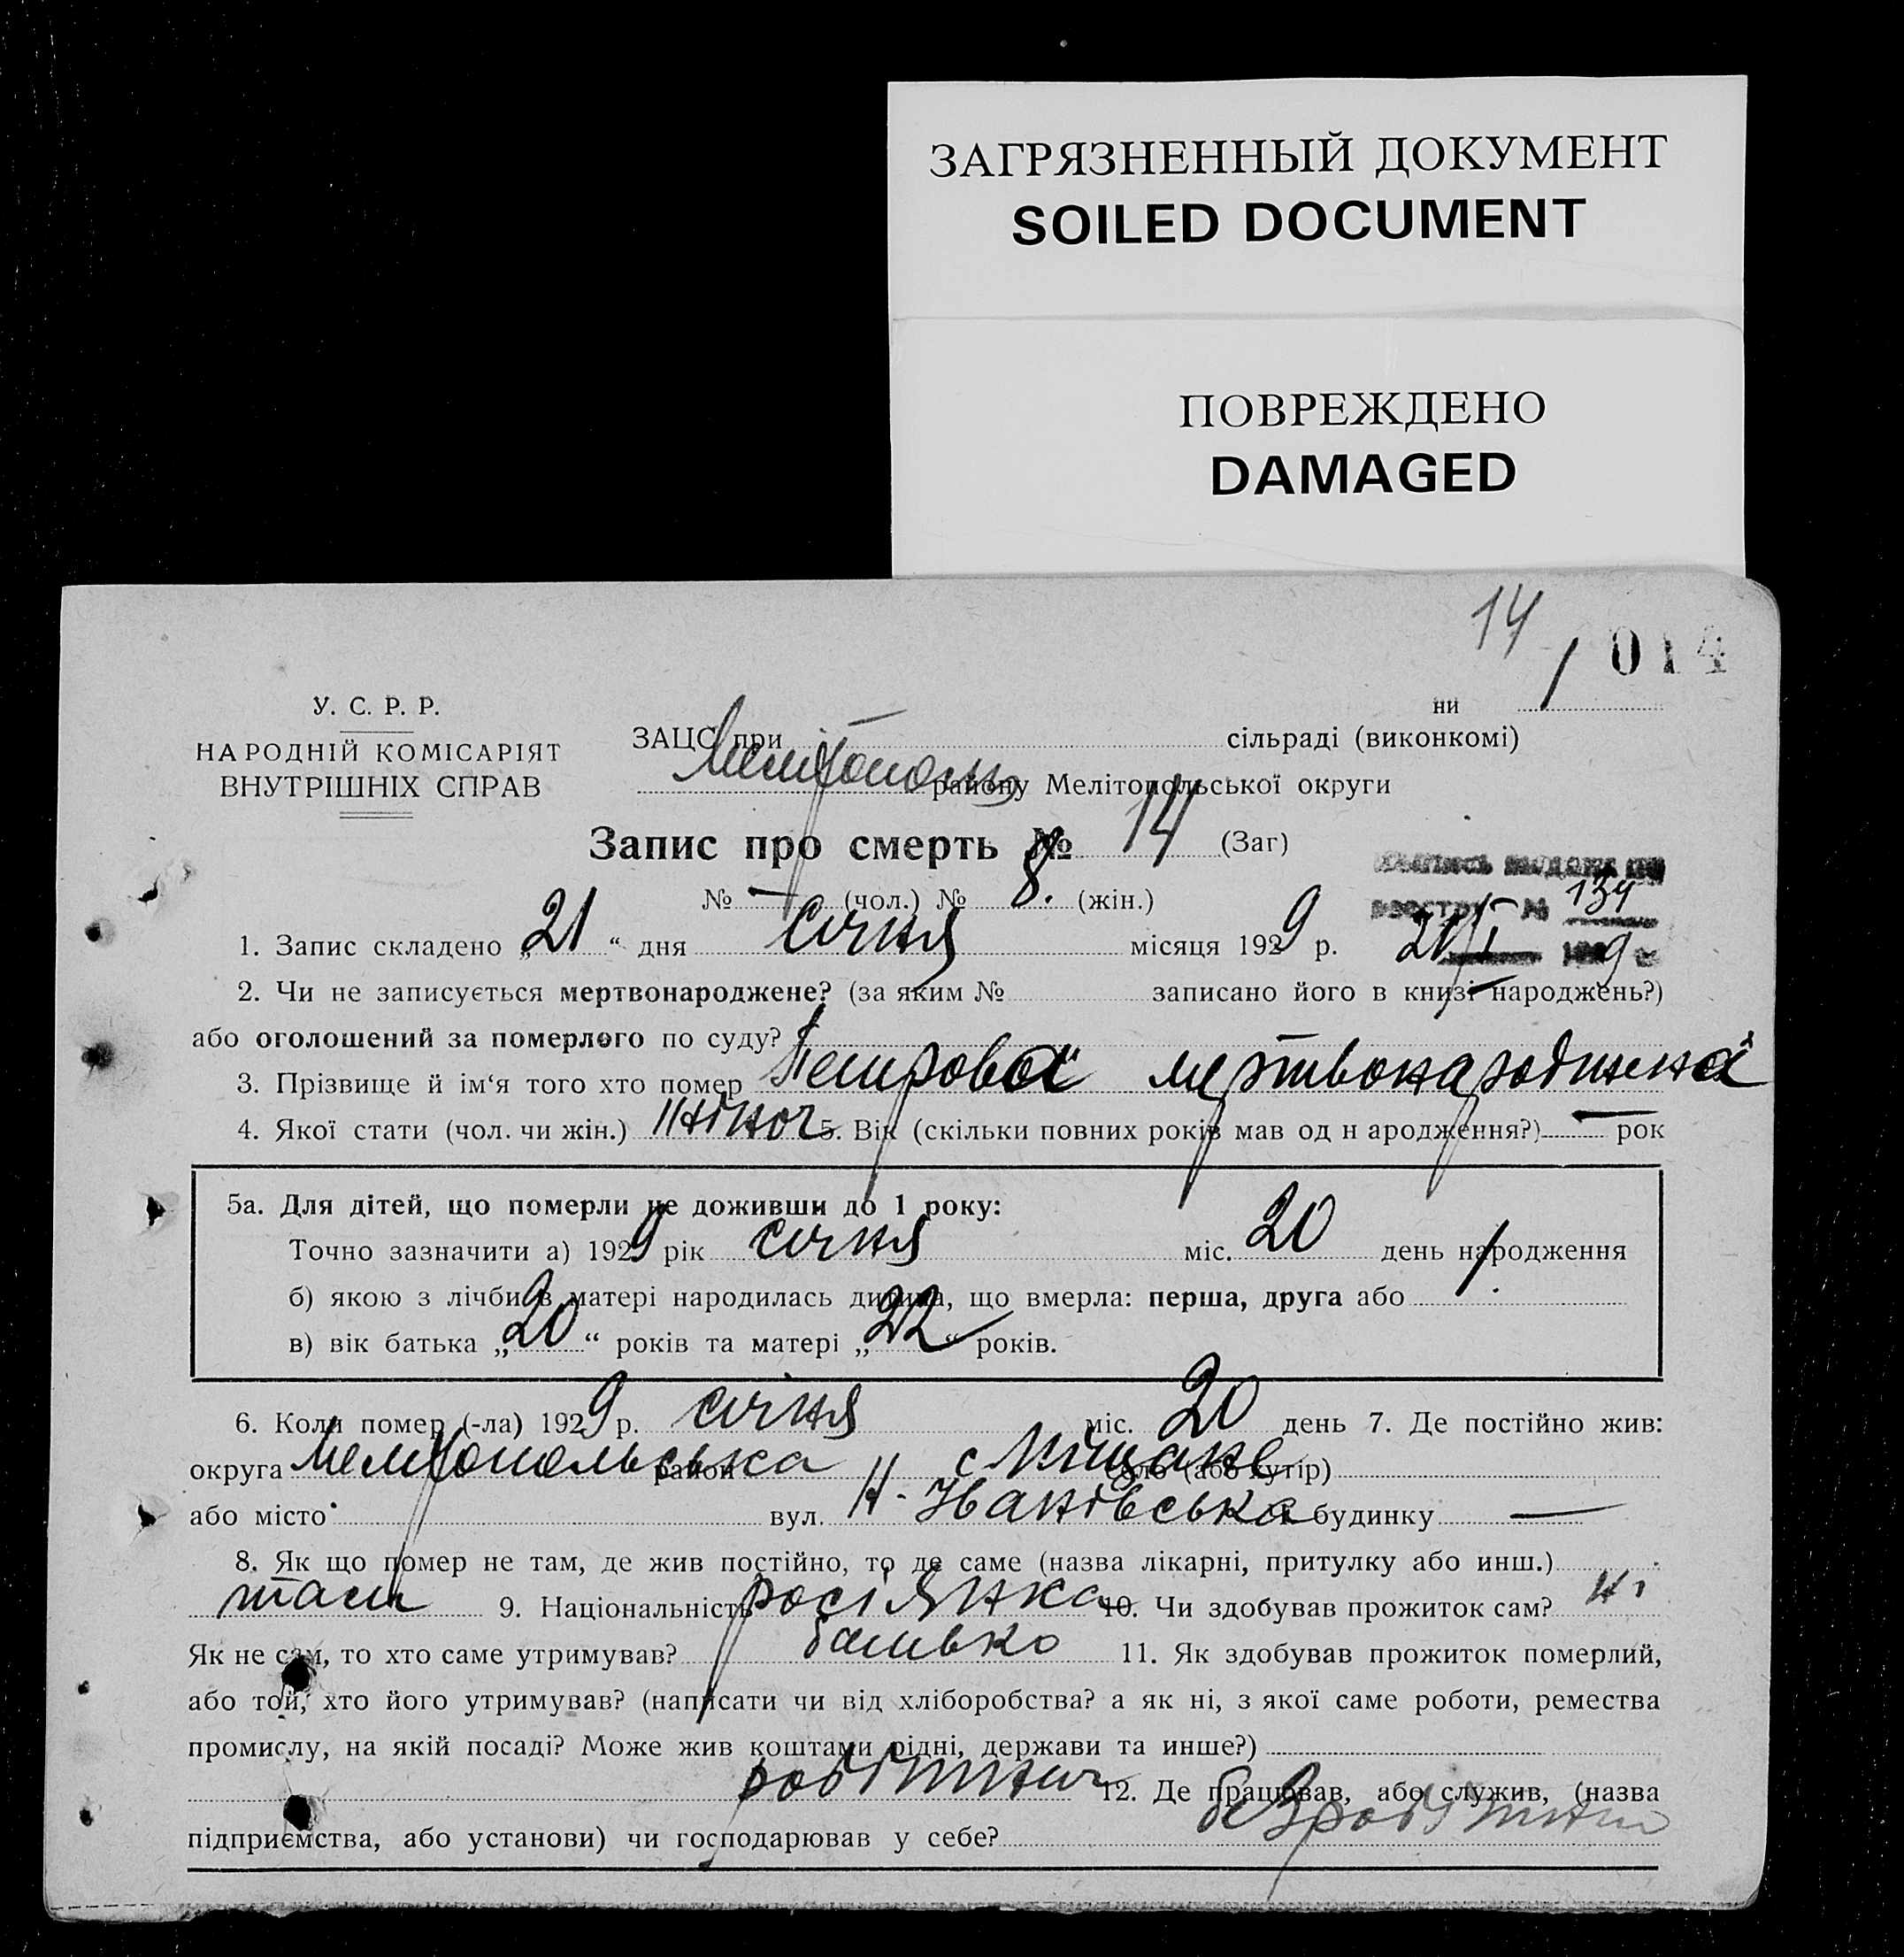 ЗАГРЯЗНЕННЫЙ ДОКУМЕНТ
SOILED DOCUMENT
ПОВРЕЖДЕНО
DAMAGED
14
014
ни 1
У. С. Р. Р.
НАРОДНІЙ КОМІСАРІЯТ
ВНУТРІШНІХ СПРАВ
ЗАЦС при сільраді (виконкомі)
району Мелітопольської округи
Запис про смерть № 14 (Заг)
№ — (чол.) № 8. (жін.)
134
1. Запис складено „21“ дня січня місяця 1929 р.
2. Чи не записується мертвонароджене? (за яким № записано його в книзі народжень?)
або оголошений за померлого по суду?
3. Прізвище й ім‘я того хто помер Петрова мертвонароджена
4. Якої стати (чол. чи жін.) жіноч 5. Вік (скільки повних років мав од н ародження?) — рок
5а. Для дітей, що померли не доживши до 1 року:
Точно зазначити а) 1929 рік січня міс. 20 день народження
б) якою з лічби в матері народилась дитина, що вмерла: перша, друга або 1.
в) вік батька „20“ років та матері „22“ років.
6. Коли помер (-ла) 1929 р. січня міс. 20 день 7. Де постійно жив:
округа Мелітопольська район с Міщане село (або хутір)
або місто вул. Н-Іванівська № будинку —
8. Як що помер не там, де жив постійно, то де саме (назва лікарні, притулку або инш.)
там 9. Національність росіянка 10. Чи здобував прожиток сам? ні
Як не сам, то хто саме утримував? батько 11. Як здобував прожиток померлий,
або той, хто його утримував? (написати чи від хліборобства? а як ні, з якої саме роботи, ремества
промислу, на якій посаді? Може жив коштами рідні, держави та инше?)
робітнич 12. Де працював, або служив, (назва
підприємства, або установи) чи господарював у себе? безробітній